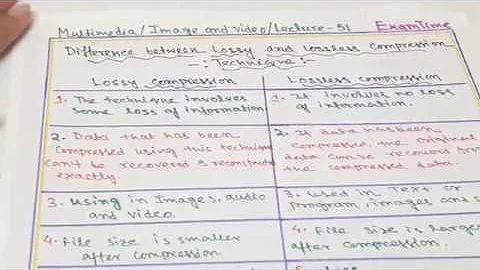 Multimedia/Image and video/Lecture-51 ExamTime
Difference between Lossy and Lossless compression
-: Technique :-
Lossy compression
Lossless compression
1. The technique involves
some loss of information
1. It involves no loss
of information.
2. Data that has been
compressed using this technique
can't be recovered & reconstructed
exactly.
2. If data has been
compressed, the original
data can be recovered from
the compressed data.
3. Using in Images, audio
and video.
3. Used in Text or
program, images and
4. File size is smaller
after compression.
4. File size is larger
after compression.